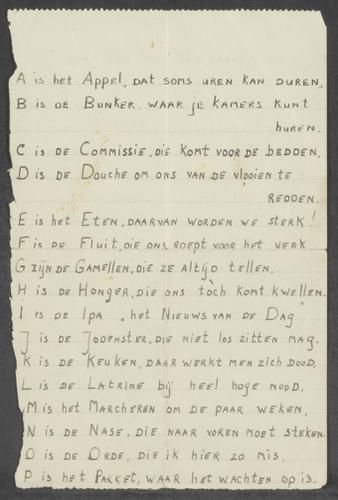 A is het Appel, dat soms uren kan duren,
B is de Bunker, waar je kamers kunt
huren.
C is de Commissie, die komt voor de bedden,
D is de Douche om ons van de vlooien te
redden.
E is het Eten, daarvan worden we sterk!
F is de Fluit, die ons roept voor het werk
G zijn de Gamellen, die ze altijd tellen,
H is de Honger, die ons tòch komt kwellen.
I is de Ipa, het Nieuws van de Dag
J is de Jodenster, die niet los zitten mag.
K is de Keuken, daar werkt men zich dood,
L is de Latrine bij heel hoge nood.
M is het Marcheren om de paar weken,
N is de Nase, die naar voren moet steken.
O is de Orde, die ik hier zo mis,
P is het Pakket, waar het wachten op is.